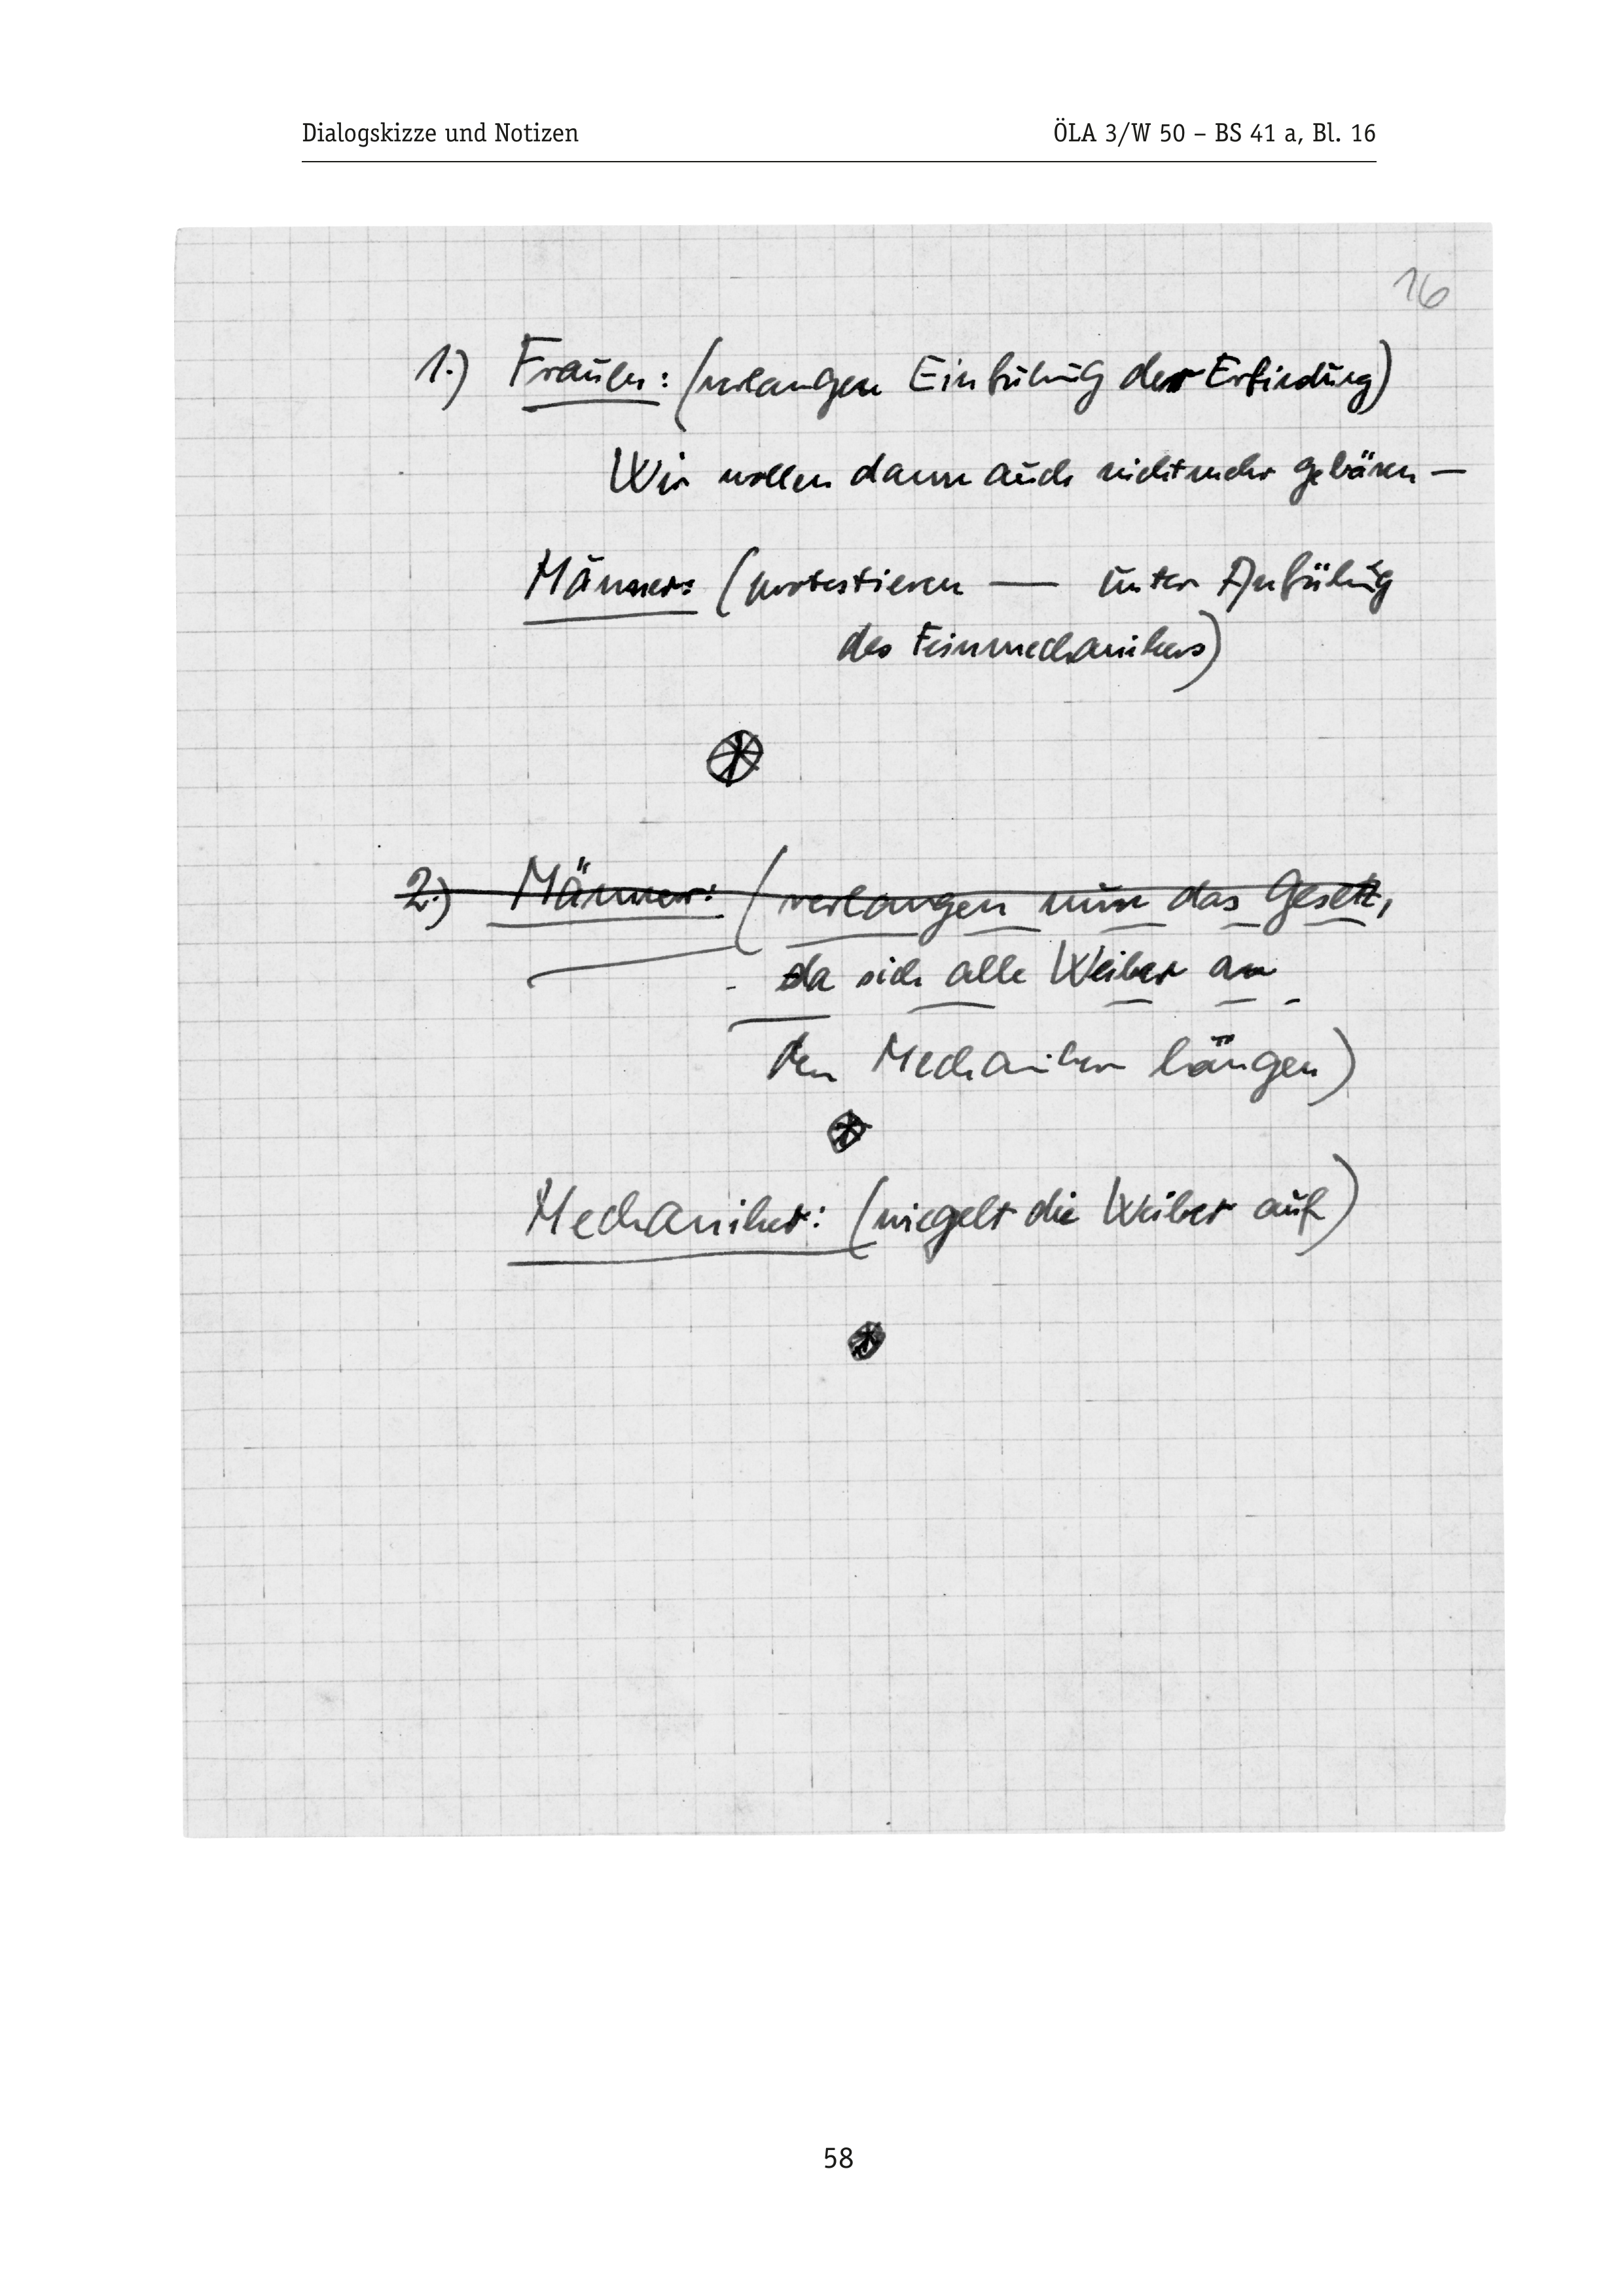 Dialogskizze und Notizen ÖLA 3/W 50 – BS 41 a, Bl. 16
16
1.) Frauen: (verlangen Einführung der Erfindung)
Wir wollen dann auch nicht mehr gebären —
Männer: (protestieren — unter Anführung
des Feinmechanikers)
2.) Männer: (verlangen nun das Gesetz,
da sich alle Weiber an
den Mechaniker hängen)
Mechaniker: (wiegelt die Weiber auf)
58